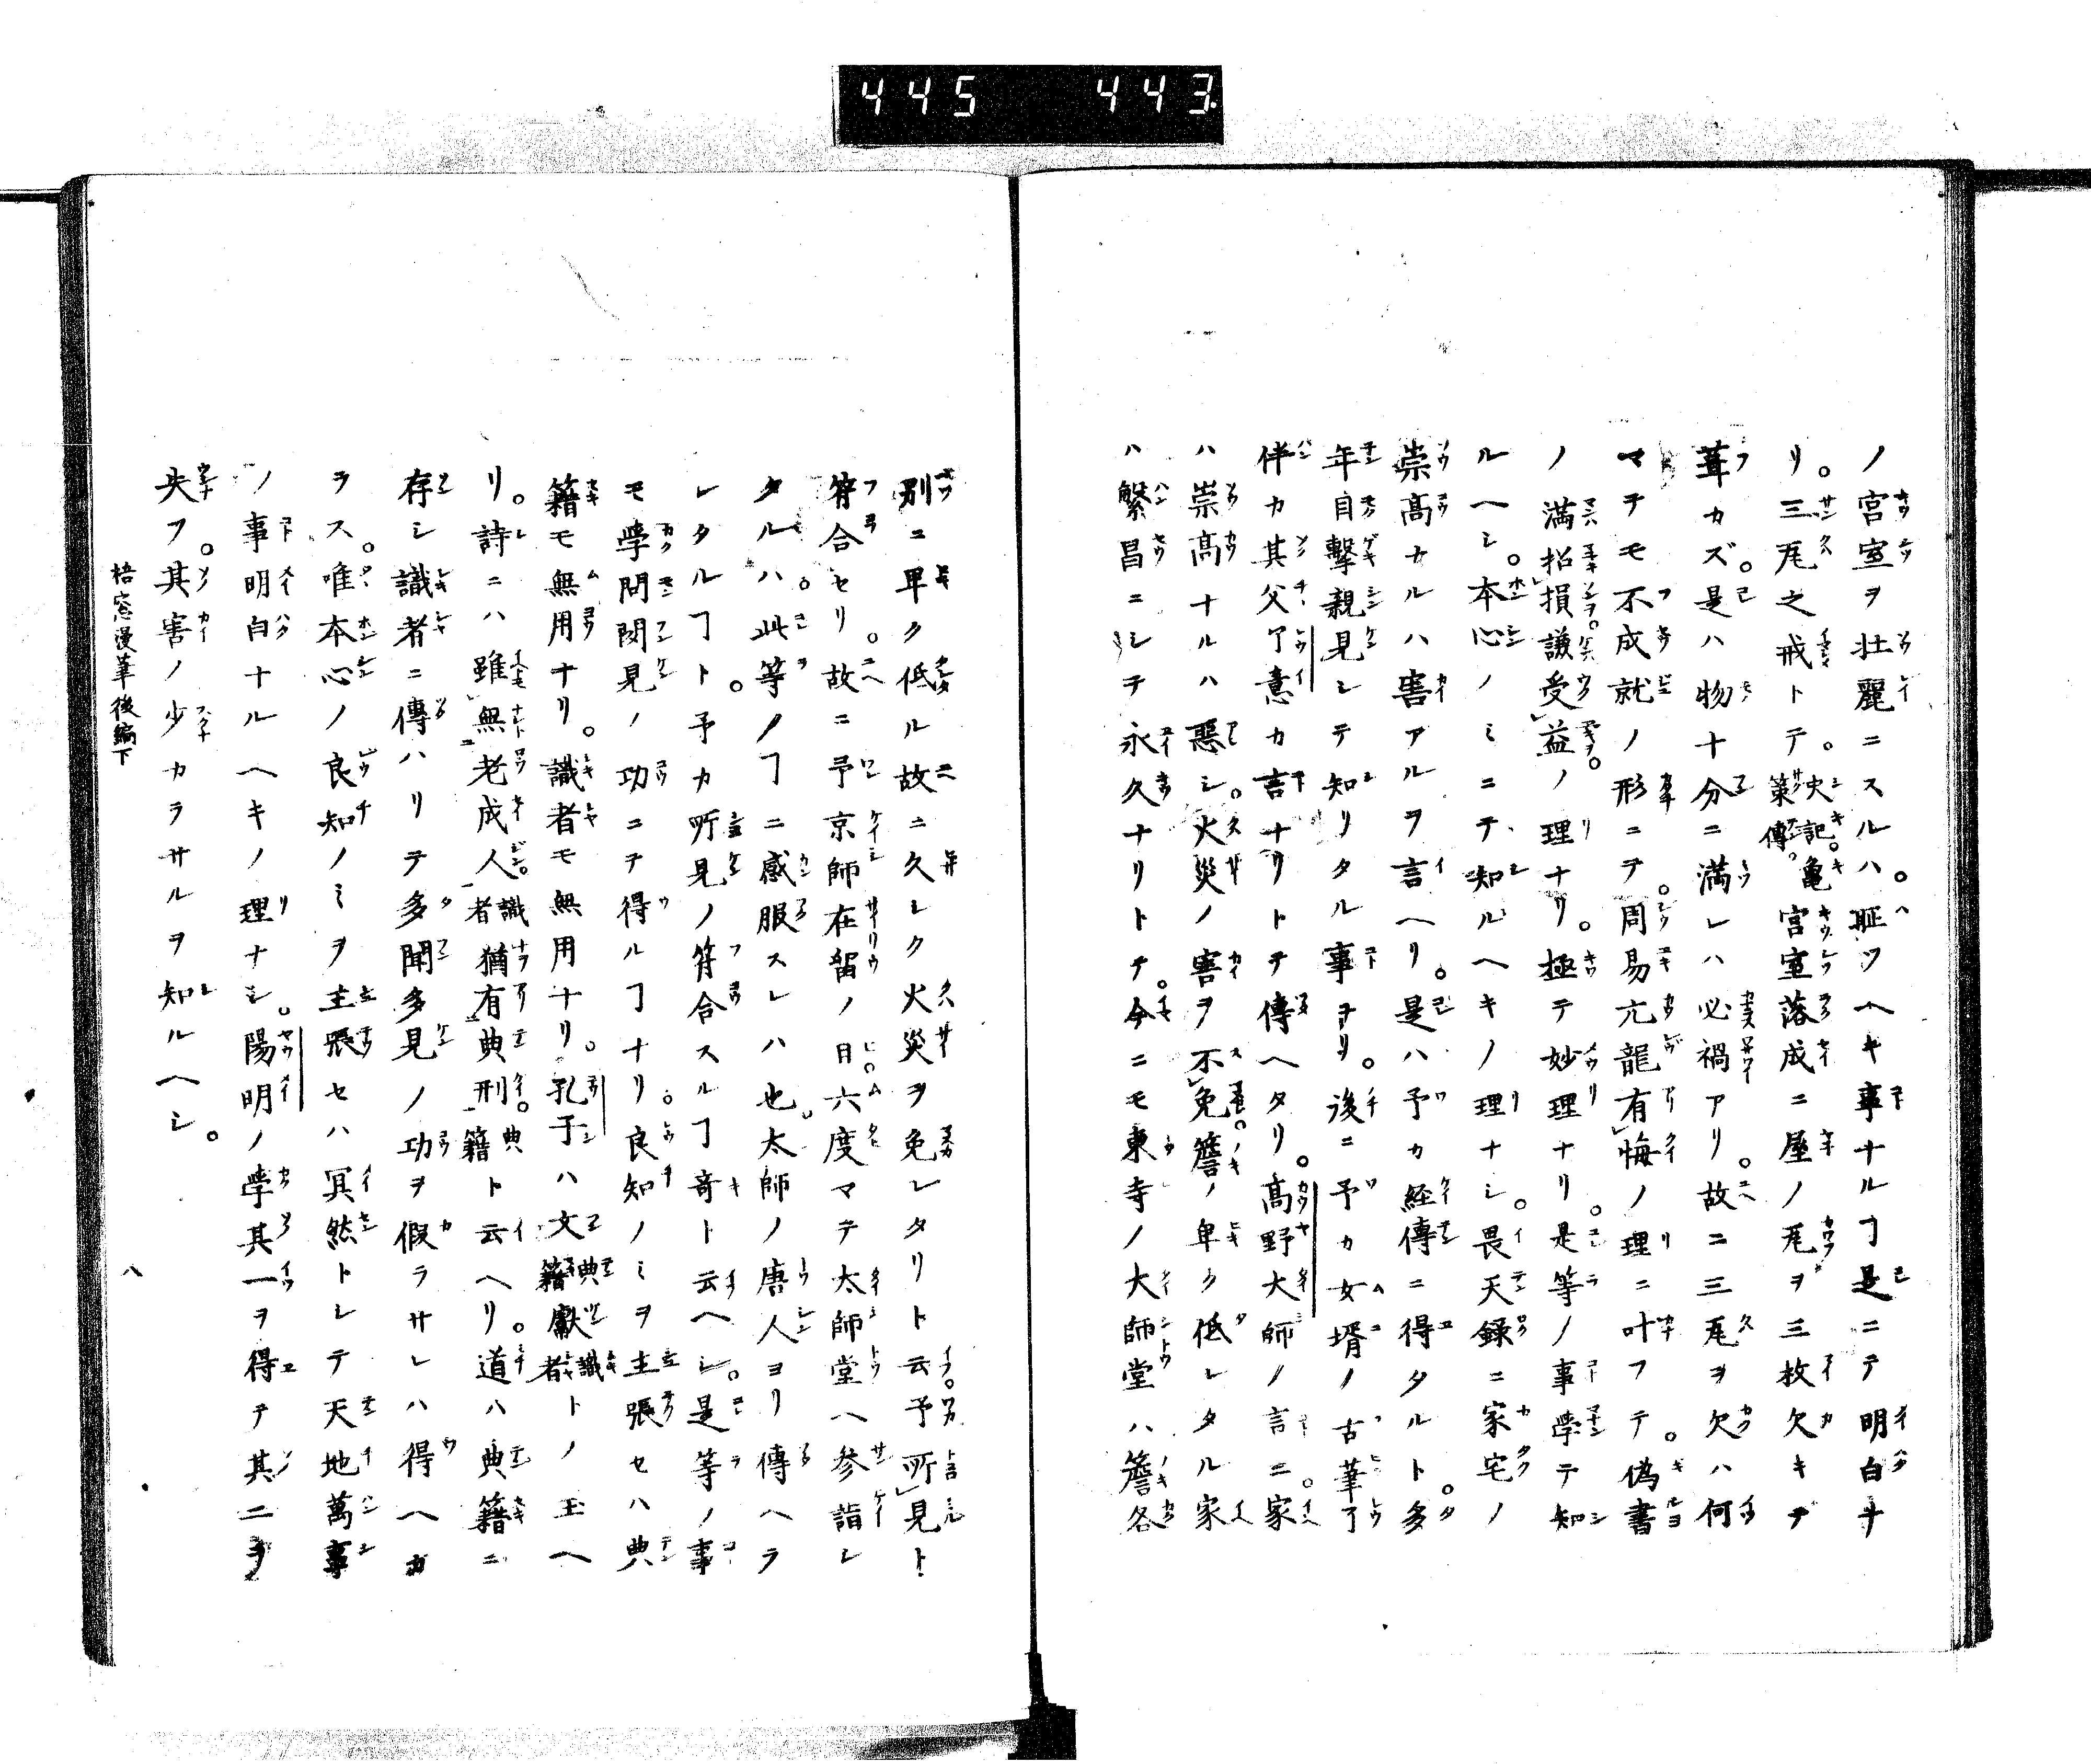 445 443
ノ宮室ヲ壮麗ニスルハ。耻ツヘキ事ナルヿ是ニテ明白ナ
リ。三瓦之戒トテ。史記。亀策傳。宮室落成ニ屋ノ瓦ヲ三枚欠キテ
葺カズ。是ハ物十分ニ満レハ必禍アリ。故ニ三瓦ヲ欠ハ何
マテモ不成就ノ形ニテ。周易亢龍有悔ノ理ニ叶フテ。偽書
ノ満招損謙受益ノ理ナリ。極テ妙理ナリ。是等ノ事学テ知
ルヘシ。本心ノミニテ知ルヘキノ理ナシ。畏天録ニ家宅ノ
崇高ナルハ害アルヲ言ヘリ。是ハ予カ経傳ニ得タルト。多
年自撃親見シテ知リタル事ヲリ。後ニ予カ女壻ノ古筆了
伴カ其父了意カ言ナリトテ傳ヘタリ。高野大師ノ言ニ。家
ハ崇高ナルハ惡シ。火災ノ害ヲ不免。簷ノ卑ク低レタル家
ハ繁昌ニシテ永久ナリトテ。今ニモ東寺ノ大師堂ハ簷各
別ニ卑ク低ル故ニ久シク火災ヲ免レタリト云。予所見ト
符合セリ。故ニ予京師在留ノ日。六度マテ太師堂ヘ参詣シ
タルハ。此等ノヿニ感服スレハ也。太師ノ唐人ヨリ傳ヘラ
レタルヿト。予カ所見ノ符合スルヿ奇ト云ヘシ。是等ノ事
モ學問聞見ノ功ニテ得ルヿナリ。良知ノミヲ主張セハ典
籍モ無用ナリ。識者モ無用ナリ。孔子ハ文典籍獻識者トノ玉ヘ
リ。詩ニハ雖無老成人。識者猶有典刑。典籍ト云ヘリ。道ハ典籍ニ
存シ識者ニ傳ハリテ多聞多見ノ功ヲ假ラサレハ得ヘカ
ラス。唯本心ノ良知ノミヲ主張セハ冥然トシテ天地萬事
ノ事明白ナルヘキノ理ナシ。陽明ノ學其一ヲ得テ其二ヲ
失フ。其害ノ少カラサルヲ知ルヘシ。
梧窓漫筆後編下
八